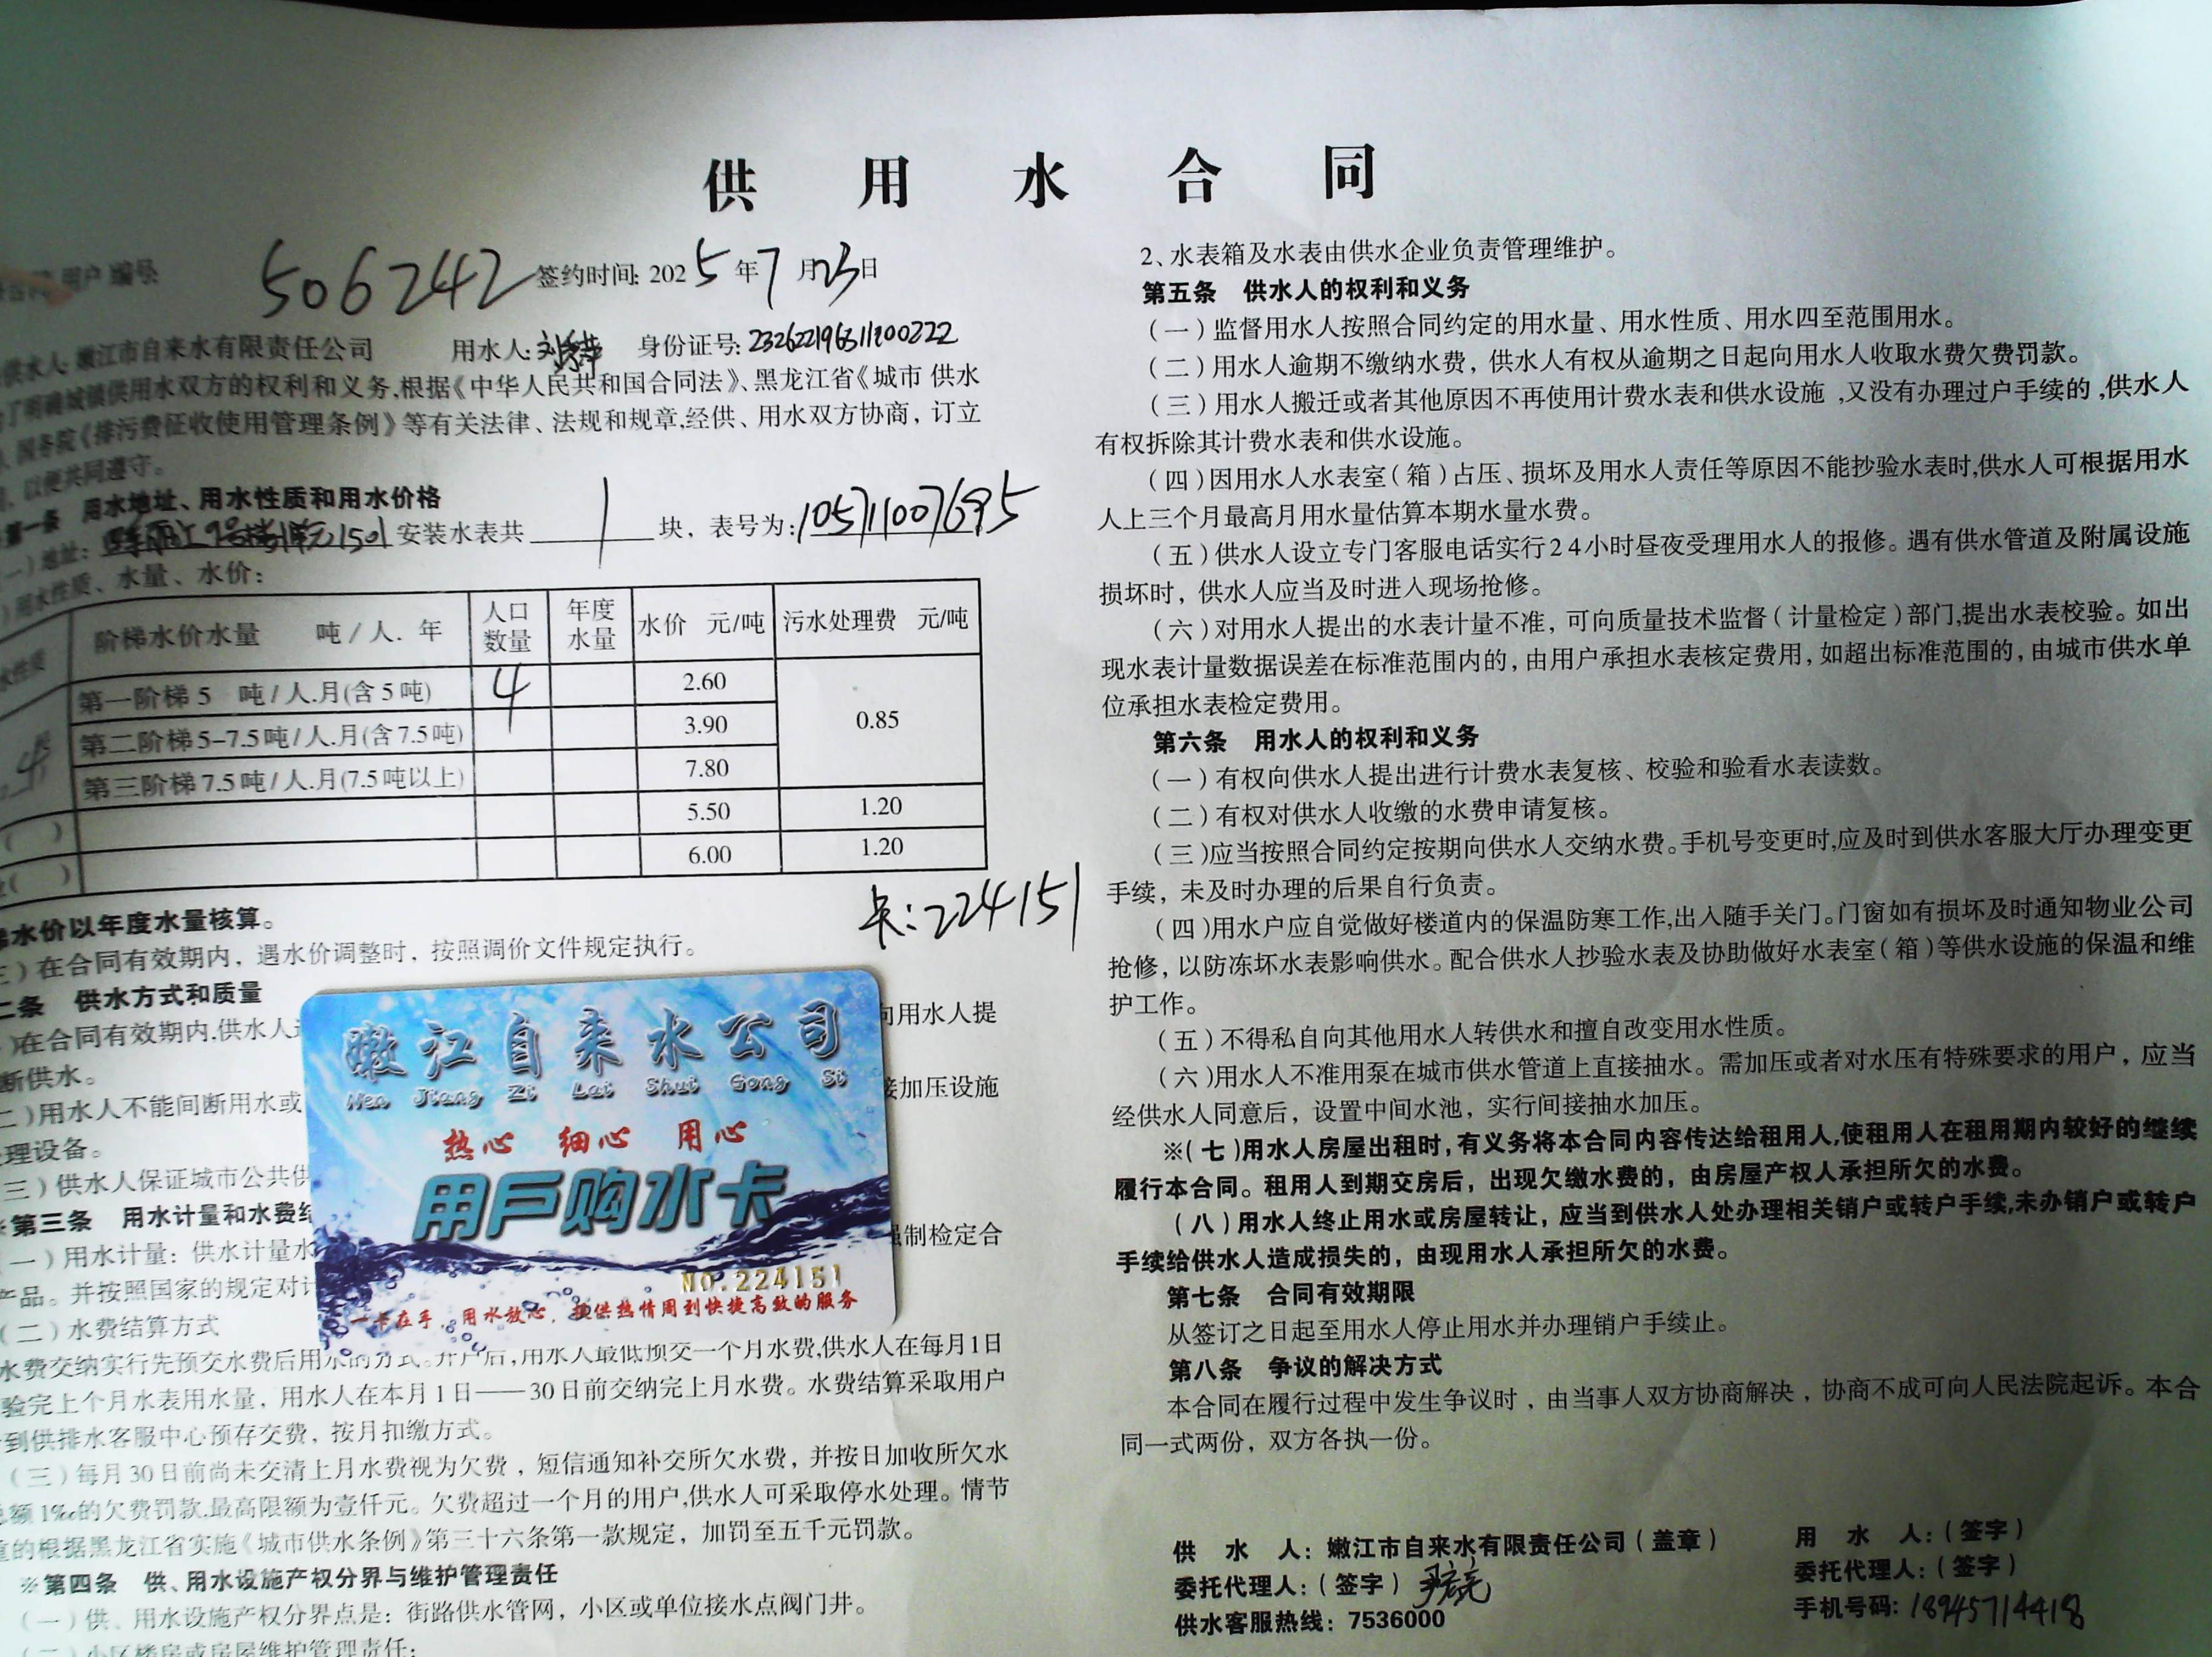 供用水合同
用户编号: 506242 签约时间: 2025年7月23日
供水人: 嫩江市自来水有限责任公司 用水人: 身份证号:
了明确城镇供用水双方的权利和义务,根据《中华人民共和国合同法》、黑龙江省《城市 供水
国务院《排污费征收使用管理条例》等有关法律、法规和规章,经供、用水双方协商，订立
以便共同遵守。
第一条 用水地址、用水性质和用水价格
(一)地址: 9号楼1单元1501 安装水表共 1 块，表号为: 105711007695
用水性质、水量、水价:
水性质 阶梯水价水量 吨/人. 年 人口数量 年度水量 水价 元/吨 污水处理费 元/吨
第一阶梯 5 吨/人.月(含 5 吨) 4 2.60 0.85
第二阶梯 5-7.5吨/人.月(含 7.5 吨) 3.90
第三阶梯 7.5 吨/人.月(7.5 吨以上) 7.80
( ) 5.50 1.20
( ) 6.00 1.20
卡: 224151
水价以年度水量核算。
三)在合同有效期内，遇水价调整时，按照调价文件规定执行。
二条 供水方式和质量
)在合同有效期内,供水人 向用水人提
断供水。
二)用水人不能间断用水或 接加压设施
理设备。
三)供水人保证城市公共供
※第三条 用水计量和水费结
(一)用水计量: 供水计量水 强制检定合
产品。并按照国家的规定对计
(二)水费结算方式
水费交纳实行先预交水费后用水的方式。开户后,用水人最低预交一个月水费,供水人在每月1日
验完上个月水表用水量，用水人在本月 1 日——30 日前交纳完上月水费。水费结算采取用户
到供排水客服中心预存交费，按月扣缴方式。
(三)每月 30 日前尚未交清上月水费视为欠费，短信通知补交所欠水费，并按日加收所欠水
总额 1‰的欠费罚款,最高限额为壹仟元。欠费超过一个月的用户,供水人可采取停水处理。情节
的根据黑龙江省实施《城市供水条例》第三十六条第一款规定，加罚至五千元罚款。
※第四条 供、用水设施产权分界与维护管理责任
(一)供、用水设施产权分界点是: 街路供水管网，小区或单位接水点阀门井。
(二)小区楼房或房屋维护管理责任:
嫩江自来水公司
Nen Jiang Zi Lai Shui Gong Si
热心 细心 用心
用户购水卡
NO.224151
一卡在手，用水放心，提供热情周到快捷高效的服务
2、水表箱及水表由供水企业负责管理维护。
第五条 供水人的权利和义务
(一)监督用水人按照合同约定的用水量、用水性质、用水四至范围用水。
(二)用水人逾期不缴纳水费，供水人有权从逾期之日起向用水人收取水费欠费罚款。
(三)用水人搬迁或者其他原因不再使用计费水表和供水设施,又没有办理过户手续的,供水人
有权拆除其计费水表和供水设施。
(四)因用水人水表室(箱)占压、损坏及用水人责任等原因不能抄验水表时,供水人可根据用水
人上三个月最高月用水量估算本期水量水费。
(五)供水人设立专门客服电话实行24小时昼夜受理用水人的报修。遇有供水管道及附属设施
损坏时，供水人应当及时进入现场抢修。
(六)对用水人提出的水表计量不准，可向质量技术监督(计量检定)部门,提出水表校验。如出
现水表计量数据误差在标准范围内的，由用户承担水表核定费用，如超出标准范围的，由城市供水单
位承担水表检定费用。
第六条 用水人的权利和义务
(一)有权向供水人提出进行计费水表复核、校验和验看水表读数。
(二)有权对供水人收缴的水费申请复核。
(三)应当按照合同约定按期向供水人交纳水费。手机号变更时,应及时到供水客服大厅办理变更
手续，未及时办理的后果自行负责。
(四)用水户应自觉做好楼道内的保温防寒工作,出入随手关门。门窗如有损坏及时通知物业公司
抢修，以防冻坏水表影响供水。配合供水人抄验水表及协助做好水表室(箱)等供水设施的保温和维
护工作。
(五)不得私自向其他用水人转供水和擅自改变用水性质。
(六)用水人不准用泵在城市供水管道上直接抽水。需加压或者对水压有特殊要求的用户，应当
经供水人同意后，设置中间水池，实行间接抽水加压。
※(七)用水人房屋出租时,有义务将本合同内容传达给租用人,使租用人在租用期内较好的继续
履行本合同。租用人到期交房后，出现欠缴水费的，由房屋产权人承担所欠的水费。
(八)用水人终止用水或房屋转让，应当到供水人处办理相关销户或转户手续,未办销户或转户
手续给供水人造成损失的，由现用水人承担所欠的水费。
第七条 合同有效期限
从签订之日起至用水人停止用水并办理销户手续止。
第八条 争议的解决方式
本合同在履行过程中发生争议时，由当事人双方协商解决，协商不成可向人民法院起诉。本合
同一式两份，双方各执一份。
供 水 人: 嫩江市自来水有限责任公司(盖章) 用 水 人:(签字)
委托代理人:(签字) 委托代理人:(签字)
供水客服热线: 7536000 手机号码: 18945714418